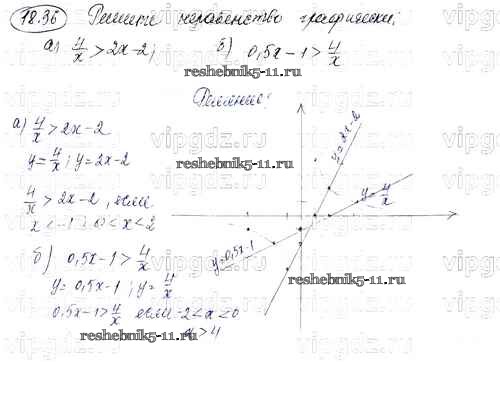 18.36 Решите неравенство графически:
а) 4/x > 2x-2; б) 0,5x-1 > 4/x
reshebnik5-11.ru
Решение:
а) 4/x > 2x-2
y = 4/x; y = 2x-2
4/x > 2x-2, если
x < -1; 0 < x < 2
б) 0,5x-1 > 4/x
y = 0,5x-1; y = 4/x
0,5x-1 > 4/x если -2 < x < 0
x > 4
y=2x-2
y=4/x
y=0,5x-1
reshebnik5-11.ru
reshebnik5-11.ru
reshebnik5-11.ru
vipgdz.ru